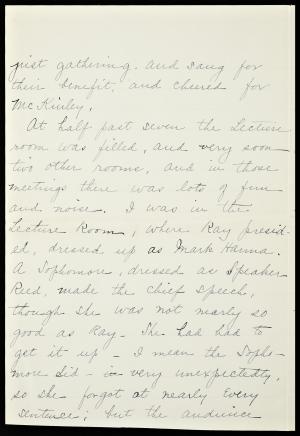 just gathering. And sang for
their benefit, and cheered for
McKinley.
At half past seven the Lecture
room was filled, and very soon
two other rooms, and in those
meetings there was lots of fun
and noise. I was in the
Lecture Room, where Ray presid-
ed, dressed up as Mark Hanna.
A Sophomore, dressed as Speaker
Reed, made the chief speech,
though she was not nearly so
good as Ray - She had had to
get it up - I mean the Sopho-
more did - very unexpectedly,
so she forgot at nearly every
sentence; but the audience